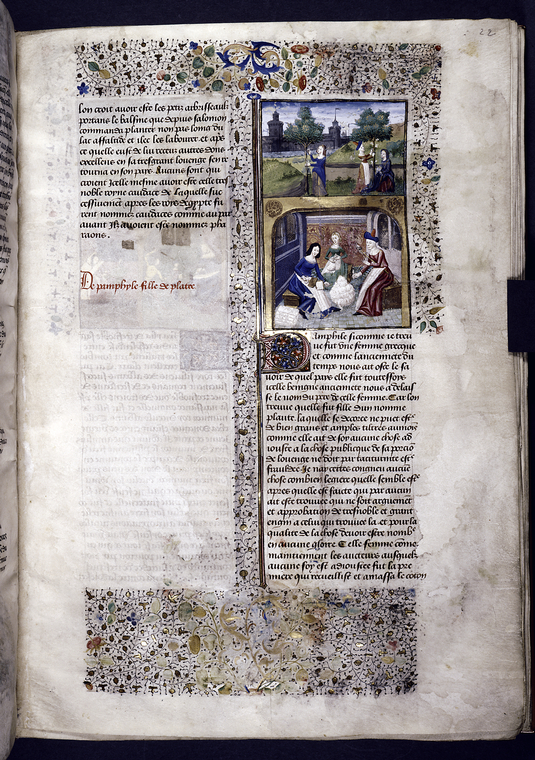 22
lon croit avoir este les petiz arbrisseaulx
portans le basme que depuis salomon
commanda planter non pas loing du
lac asfaltide et illec les labourer et apres
ce quelle eust de lui receu autres dons
excellens en sa tresgrant louenge sen re
tourna en son pays. Aucuns sont qui
croient Icelle mesme avoir este celle tres
noble royne candace de laquelle suc
cessivement apres les roys degypte fu
rent nommez candaces comme au par
avant Ilz avoient este nommez pha
raons.
De pamphyle fille de platre
Pamphile sicomme ie treu
ve fut une femme grecque
et comme lancienneté du
temps nous ait osté le sa
voir de quel pays elle fut toutesfois
icelle benigne ancienneté nous a delais
sé le nom du pere de celle femme. Car lon
treuve quelle fut fille dun nomme
platre. laquelle se decoree ne peut estre
de bien grans et amples tiltres aumoins
comme elle ait de soy aucune chose ad
iousté a la chose publicque de sa porcion
de louenge ne doit par taciturnité estre
fraudee
combien legiere quelle semble estre
apres quelle est faicte qui par aucun
ait este trouvee que ne soit argument
et approbation de tresnoble et grant
engin a celui qui trouvee la. et pour la
qualité de la chose devoir estre nombree
en aucune gloire. Celle femme comme
maintiennent les aucteurs ausquelz
aucune foy est adioustee fut la pre
miere qui recueillist et amassa le coton